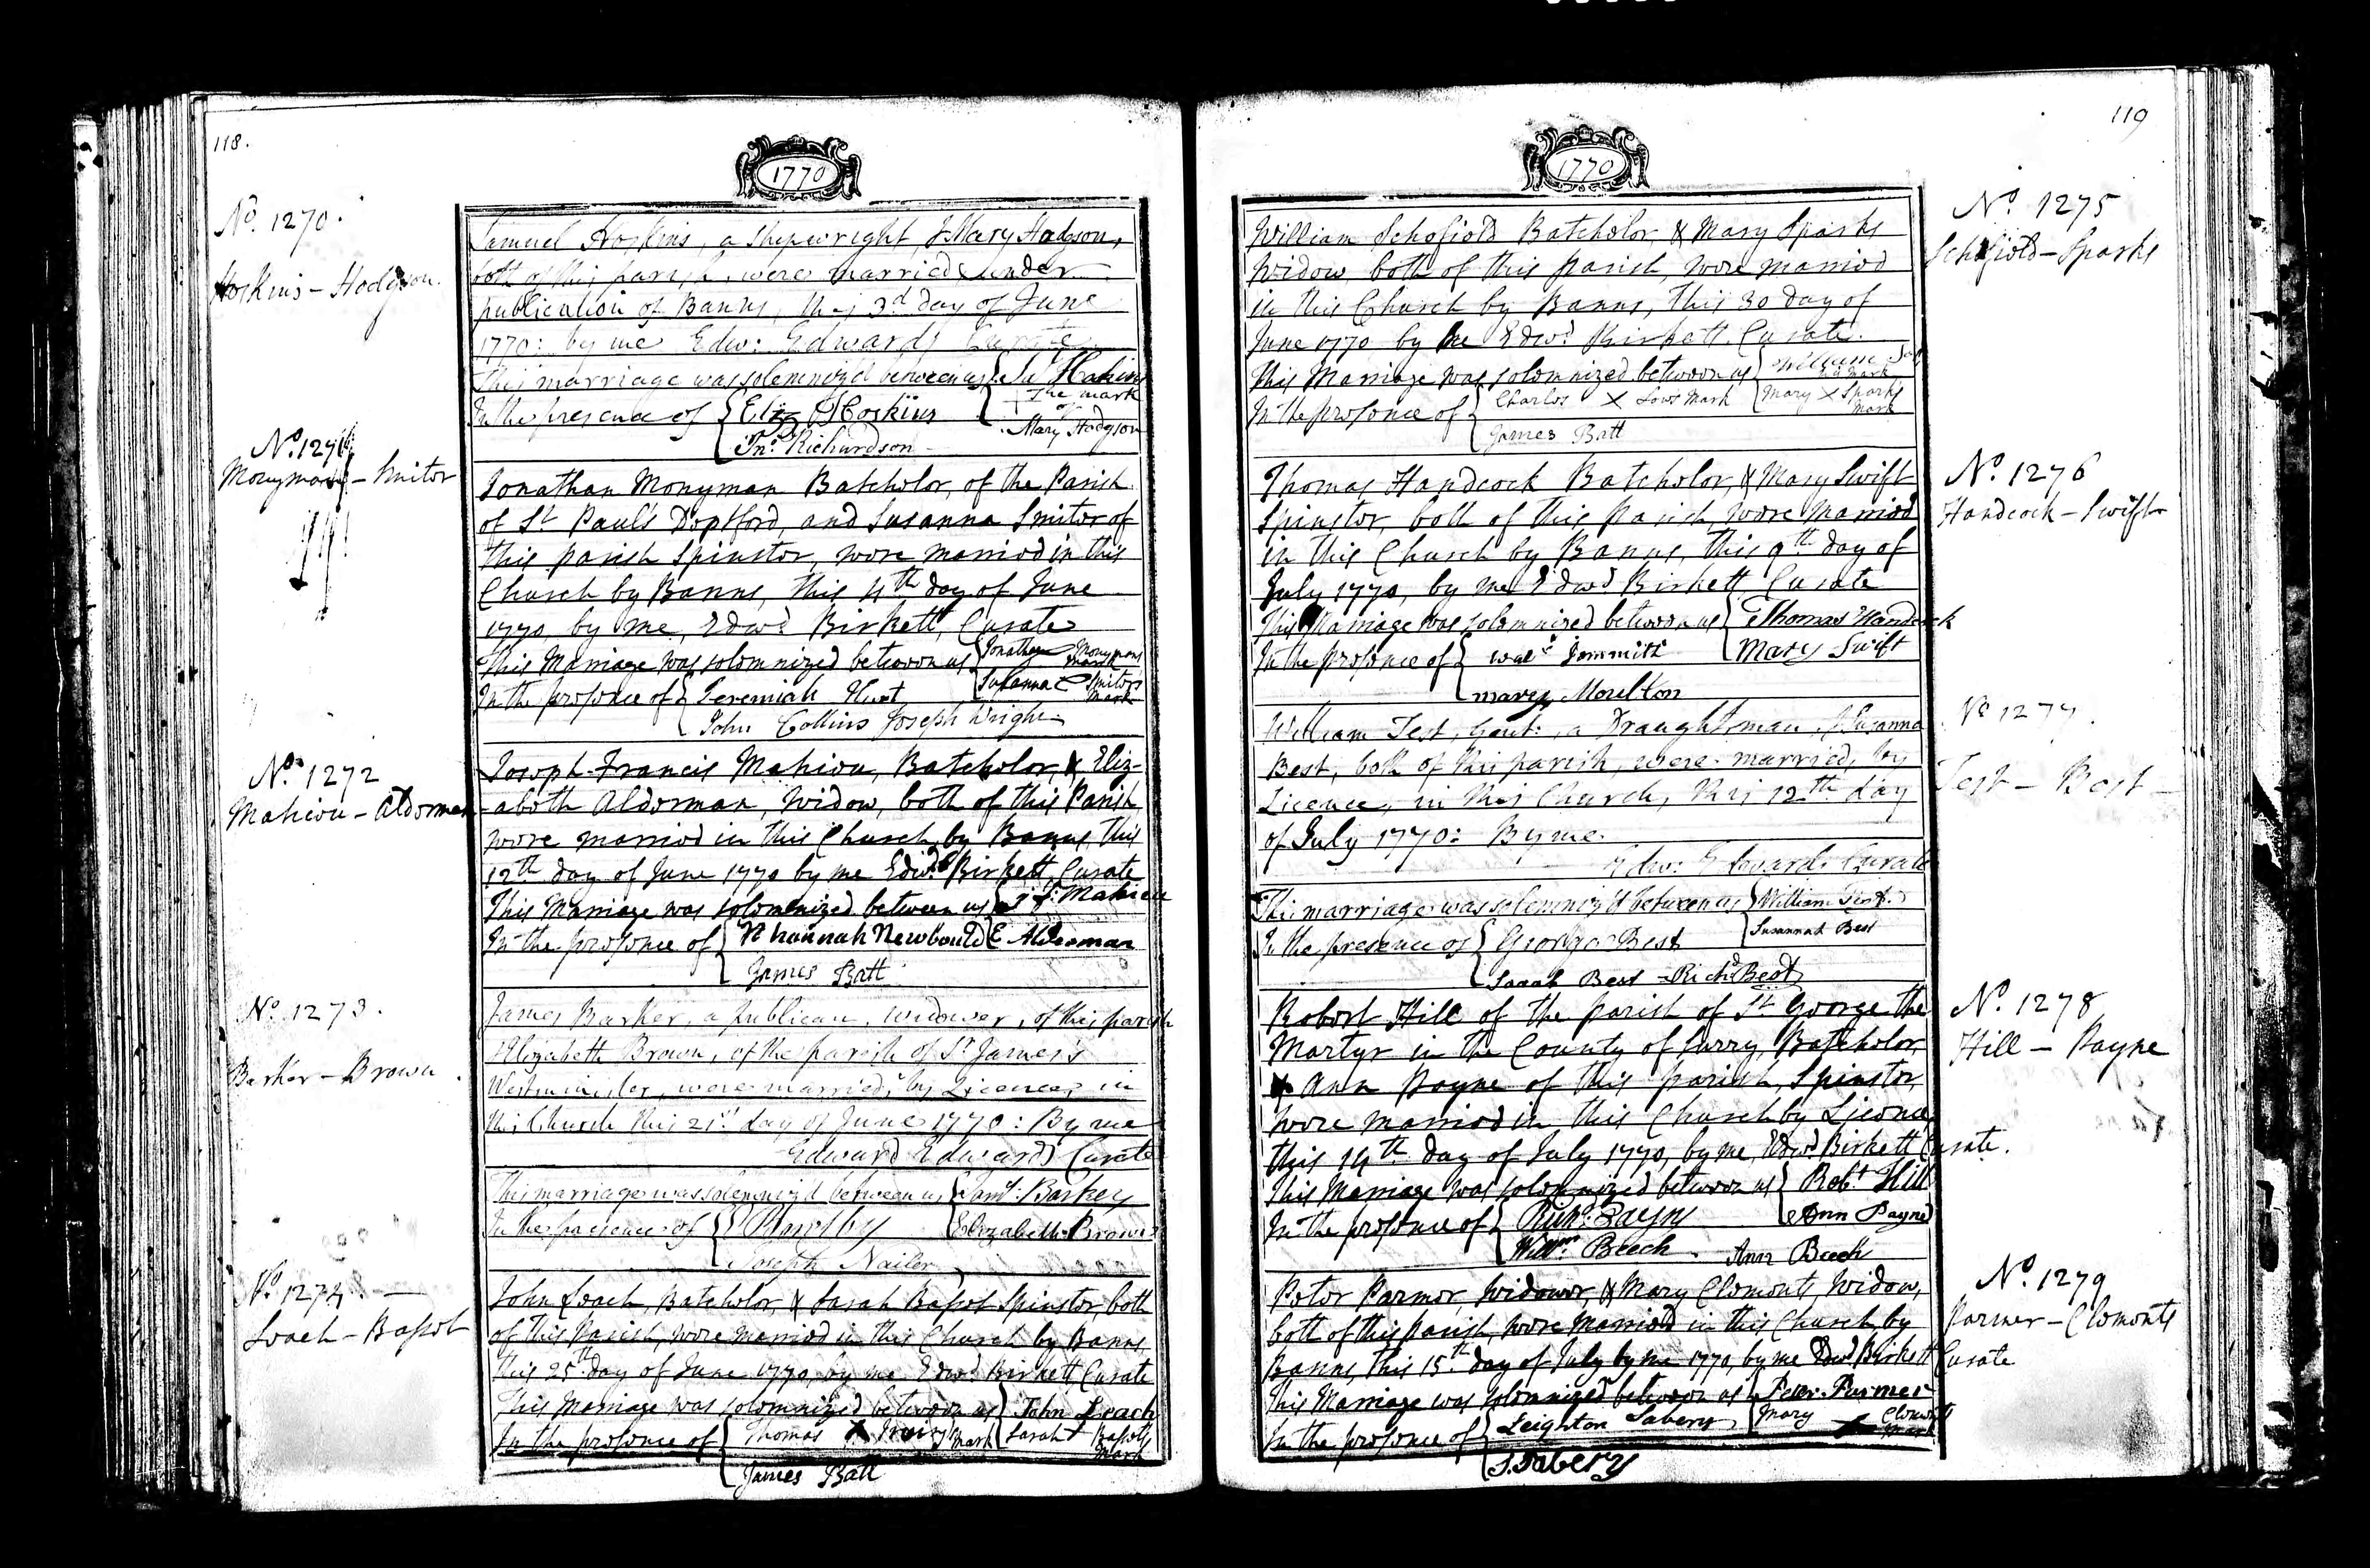 118.
1770
No. 1270.
Hoskins - Hodgson.
Samuel Hoskins, a Shipwright, & Mary Hodgson,
both of this parish, were married under
publication of Banns, this 3d day of June
1770: by me Edw: Edwards Curate
This marriage was solemnized between us { Hoskins
The mark
of
Mary Hodgson
In the presence of { Eliz Hoskins
Jno. Richardson
No. 1271
Monyman - Smiter
Jonathan Monyman Batchelor, of the Parish
of St Paul's Deptford, and Susanna Smiter of
this parish Spinster, were married in this
Church by Banns, this 4th day of June
1770, by me, Edwd. Birkett, Curate
This Marriage was solemnized between us { Jonathan Monymans mark
Susanna Smiters mark
In the presence of { Jeremiah Hunt
John Collins Joseph Wright
No. 1272
Mahieu - Alderman
Joseph Francis Mahieu, Batchelor, & Eliz-
-abeth Alderman, Widow, both of this Parish,
were married in this Church by Banns, this
12th day of June 1770 by me Edwd. Birkett, Curate
This Marriage was solemnized between us { J. F. Mahieu
In the presence of { hannah Newbould { E Alderman
James Batt
No. 1273.
Barker - Brown
James Barker, a publican, widower, of this parish
& Elizabeth Brown, of the parish of St James's
Westminster, were married, by Licence, in
this Church this 21st day of June 1770: By me
Edward Edwards Curate
This marriage was solemnized between us { Barker
In the presence of { Elizabeth Brown
Joseph Nailer
No. 1274.
Leach - Basset
John Leach, Batchelor, & Sarah Basset Spinster, both
of this Parish, were married in this Church by Banns
this 25th day of June 1770, by me Edwd. Birkett, Curate
This Marriage was solemnized between us { John Leach
In the presence of { Thomas X mark { Sarah Bassets mark
James Batt
119
1770
No. 1275
Schofield - Sparks
William Schofield Batchelor, & Mary Sparks
Widow, both of this Parish, were married
in this Church by Banns, this 30 day of
June 1770 by me Edwd. Birkett. Curate.
This Marriage was solemnized between us { William
mark
In the presence of { Charles X Lows Mark { Mary X Sparks mark
James Batt
No. 1276
Handcock - Swift
Thomas Handcock Batchelor, & Mary Swift
Spinster, both of this Parish, were married
in this Church by Banns, this 9th day of
July 1770, by me Edwd. Birkett, Curate
This Marriage was solemnized between us { Thomas Handcock
In the presence of { { Mary Swift
mary Moulton
No 1277.
Test - Best -
William Test, Gent: a Draughtsman, & Susanna
Best, both of this parish, were married, by
Licence, in this Church, this 12th day
of July 1770: By me.
Edw: Edwards Curate
This marriage was solemniz'd between us { William Test
In the presence of { George Best { Susannah Best
Sarah Best - Richd Best
No. 1278
Hill - Payne
Robert Hill of the Parish of St George the
Martyr in the County of Surry, Batchelor,
& Ann Payne of this Parish, Spinster,
were married in this Church by Licence
this 14th day of July 1770, by me, Edwd Birkett Curate.
This Marriage was solemnized between us { Robt. Hill
In the presence of { Richd. Payne { Ann Payne
Willm. Beech Ann Beech
No. 1279
Parmer - Clements
Peter Parmer, Widower, & Mary Clements, Widow,
both of this Parish, were Married in this Church, by
Banns, this 15th day of July by me 1770, by me Edwd Birkett Curate
This Marriage was solemnized between us { Peter Parmer
In the presence of { Leighton Sabery { Mary Clements mark
S. Sabery